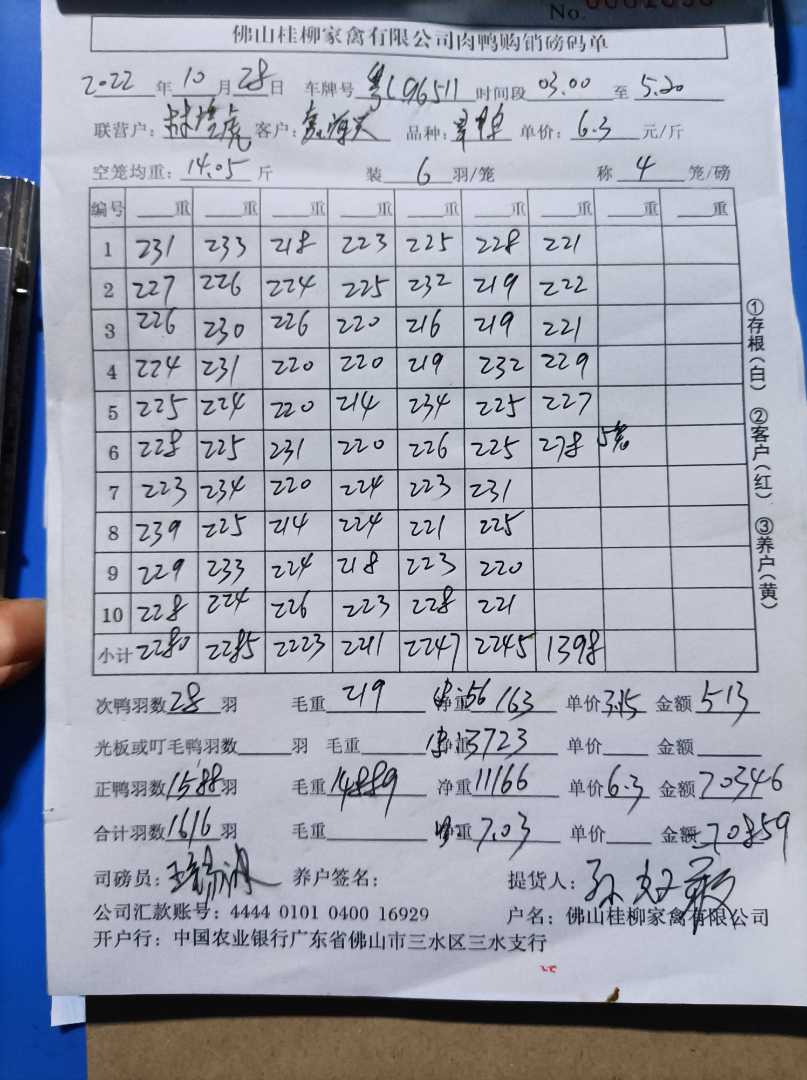 No.
佛山桂柳家禽有限公司肉鸭购销磅码单
2022年10月28日 车牌号 粤L96511 时间段 03.00 至 5.20
联营户: 客户: 品种: 单价: 6.3 元/斤
空笼均重: 14.05 斤 装 6 羽/笼 称 4 笼/磅
编号 重 重 重 重 重 重 重 重 重
1 231 233 218 223 225 228 221
2 227 226 224 225 232 219 222
3 226 230 226 220 216 219 221
4 224 231 220 220 219 232 229
5 225 224 220 214 234 225 227
6 228 225 231 220 226 225 278 5笼
7 223 234 220 224 223 231
8 239 225 214 224 221 225
9 229 233 224 218 223 220
10 228 224 226 223 228 221
小计 2280 2285 2223 2211 2247 2245 1398
次鸭羽数 28 羽 毛重 219 净重 56 163 单价 3.15 金额 513
光板或叮毛鸭羽数 羽 毛重 净重 3723 单价 金额
正鸭羽数 1588 羽 毛重 14889 净重 11166 单价 6.3 金额 70346
合计羽数 1616 羽 毛重 7.03 单价 金额 70859
司磅员: 养户签名: 提货人:
公司汇款账号: 4444 0101 0400 16929 户名: 佛山桂柳家禽有限公司
开户行: 中国农业银行广东省佛山市三水区三水支行
①存根(白) ②客户(红) ③养户(黄)